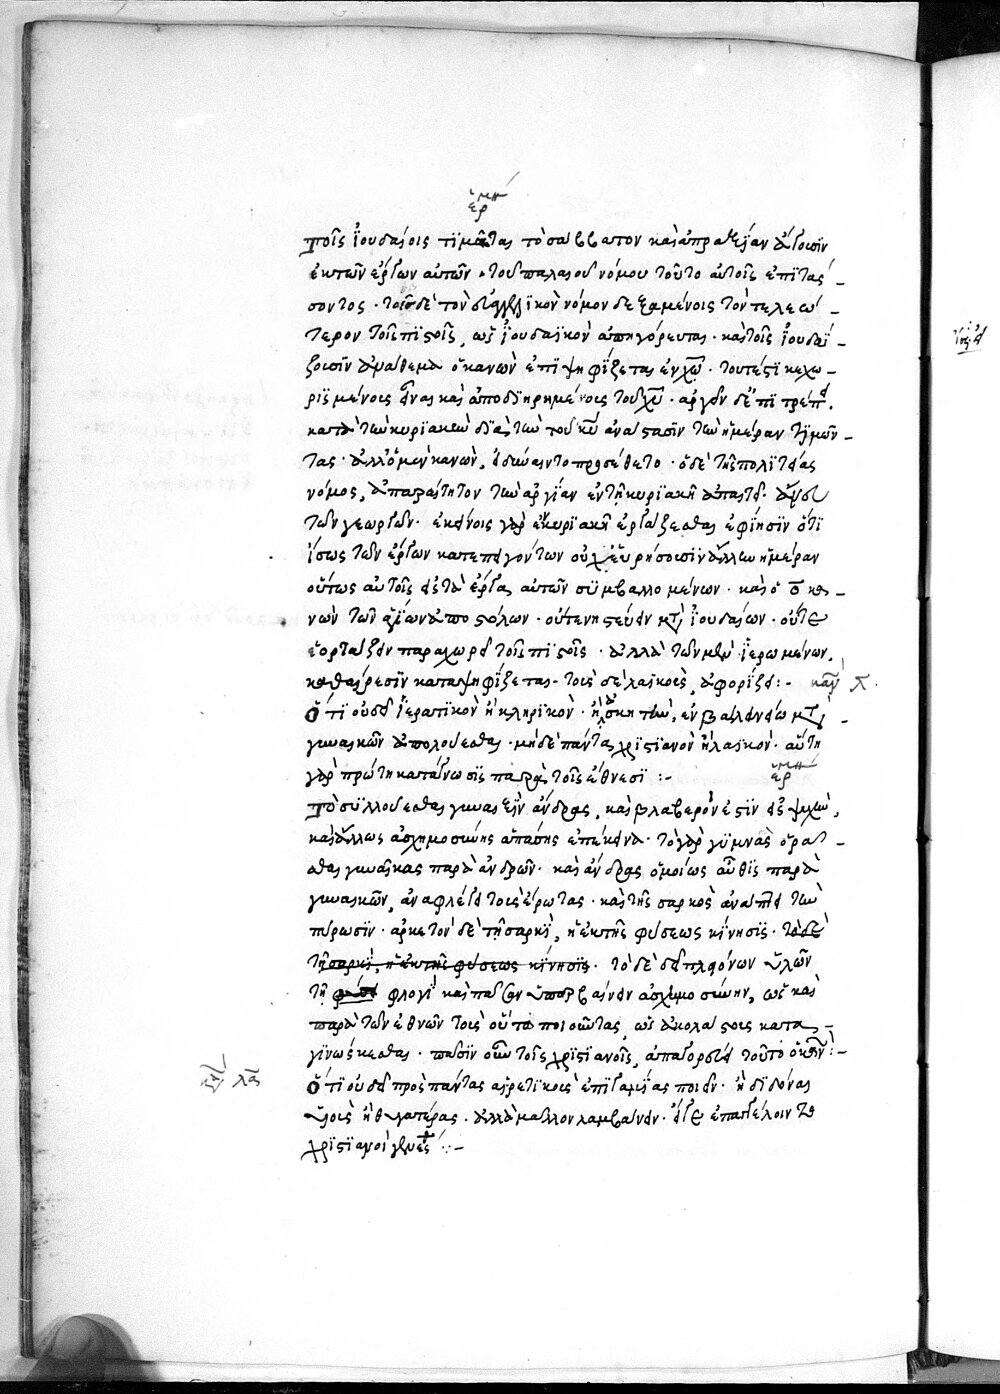 ἑρμη
Τοῖς Ἰουδαίοις τιμᾶται τὸ σάββατον καὶ ἀπραξίαν ἄγουσιν
ἐκ τῶν ἔργων αὐτῶν, τοῦ παλαιοῦ νόμου τοῦτο αὐτοῖς ἐπιτάσ-
σοντος· τοῖς δὲ τὸν εὐαγγελικὸν νόμον δεξαμένοις τὸν τελεώ-
τερον τοῖς πιστοῖς, ὡς ἰουδαϊκὸν ἀπηγόρευται· καὶ τοῖς ἰουδαΐ-
ζουσιν ἀνάθεμα ὁ κανὼν ἐπιψηφίζεται ἐν χω· τουτέστι κεχω-
ρισμένοις εἶναι καὶ ἀποδιῃρημένοις τοῦ χυ· ἀργεῖν δὲ ἐπιτρέπει
κατὰ τὴν κυριακὴν διὰ τὴν τοῦ κυ ἀνάστασιν τὴν ἡμέραν τιμῶν-
τας· ἀλλ' ὁ μὲν κανὼν, εἰ δύναιντο προσέθετο· ὁ δὲ τῆς πολιτείας
νόμος, ἀπαραίτητον τὴν ἀργίαν ἐν τῇ κυριακῇ ἀπαιτεῖ· ἄνευ
τῶν γεωργῶν· ἐκείνοις γὰρ ἐν κυριακῇ ἐργάζεσθαι ἐφίησιν ὅτι
ἴσως τῶν ἔργων κατεπειγόντων οὐχ εὑρήσουσιν ἄλλην ἡμέραν
οὕτως αὐτοῖς εἰς τὰ ἔργα αὐτῶν συμβαλλομένων· καὶ ὁ ο κα-
νὼν τῶν ἁγίων ἀποστόλων· οὔτε νηστεύειν μετὰ ἰουδαίων· οὔτε
ἑορτάζειν παραχωρεῖ τοῖς πιστοῖς· ἀλλὰ τῶν μὲν ἱερωμένων,
καθαίρεσιν καταψηφίζεται· τοὺς δὲ λαϊκοὺς, ἀφορίζει:- κανών λ.
Ὅτι οὐ δεῖ ἱερατικὸν ἢ κληρικὸν· ἢ ἀσκητὴν, ἐν βαλανείῳ μετὰ
γυναικῶν ἀπολούεσθαι· μηδὲ πάντα χριστιανὸν ἢ λαϊκὸν· αὕτη
γὰρ πρώτη κατάγνωσις παρὰ τοῖς ἔθνεσι:- ἑρμη
Τὸ συλλούεσθαι γυναιξὶν ἄνδρας, καὶ βλαβερόν ἐστιν εἰς ψυχὴν,
καὶ ἄλλως ἀσχημοσύνης ἁπάσης ἐπέκεινα· τὸ γὰρ γυμνὰς ὁρᾶσ-
θαι γυναῖκας παρὰ ἀνδρῶν· καὶ ἄνδρας ὁμοίως αὖθις παρὰ
γυναικῶν, ἀναφλέγει τοὺς ἔρωτας· καὶ τῆς σαρκὸς ἀνάπτει τὴν
πύρωσιν· ἀρκετὸν δὲ τῇ σαρκὶ, ἡ ἐκ τῆς φύσεως κίνησις· τὸ δὲ
τῇ σαρκὶ, ἡ ἐκ τῆς φύσεως κίνησις· τὸ δὲ ἐκ πλειόνων ὑλῶν
τῇ φύσει φλογὶ καὶ πᾶσαν ὑπερβαίνειν ἀσχημοσύνην, ὡς καὶ
παρὰ τῶν ἐθνῶν τοὺς οὕτω ποιοῦντας, ὡς ἀκολάστους κατα-
γινώσκεσθαι· πᾶσιν οὖν τοῖς χριστιανοῖς, ἀπαγορεύει τοῦτο ὁ κανών:-
κανών λα
Ὅτι οὐ δεῖ πρὸς πάντας αἱρετικοὺς ἐπιγαμίας ποιεῖν· ἢ διδόναι
υἱοὺς ἢ θυγατέρας· ἀλλὰ μᾶλλον λαμβάνειν· εἴγε ἐπαγγέλλοιντο
χριστιανοὶ γενέσθαι:-